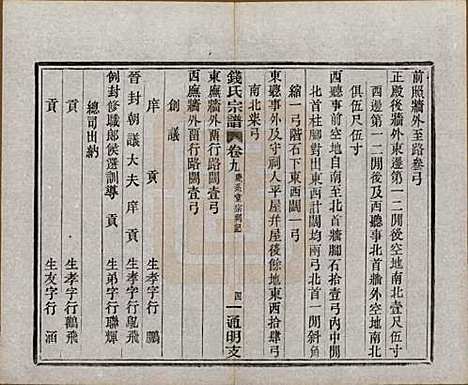 前照牆外至路叁弓
正殿後牆外東邊第一二開後空地南北壹尺伍寸
西邊第一二開後及西聽事北首牆外空地南北
俱伍尺
西聽事前空地自南至北首牆腳石拾壹弓內中開
北首柱腳對出東西計闊均兩弓北首一開斜角
縮一弓階石下東西闊一弓
東聽事外及守祠人平屋并屋後餘地東西拾肆弓
南北柒弓
東廡牆外留行路闊壹弓
西廡牆外留行路闊壹弓
錢氏宗譜
卷九
慶系堂宗祠記
四
一通明支
創議
庠貢
生孝字行鵬
晉封朝議大夫庠貢
生孝字行鳳飛
例封修職郎侯選訓導
貢
生弟字行聯輝
總司出納
貢
生孝字行鶴飛
貢
生友字行涵